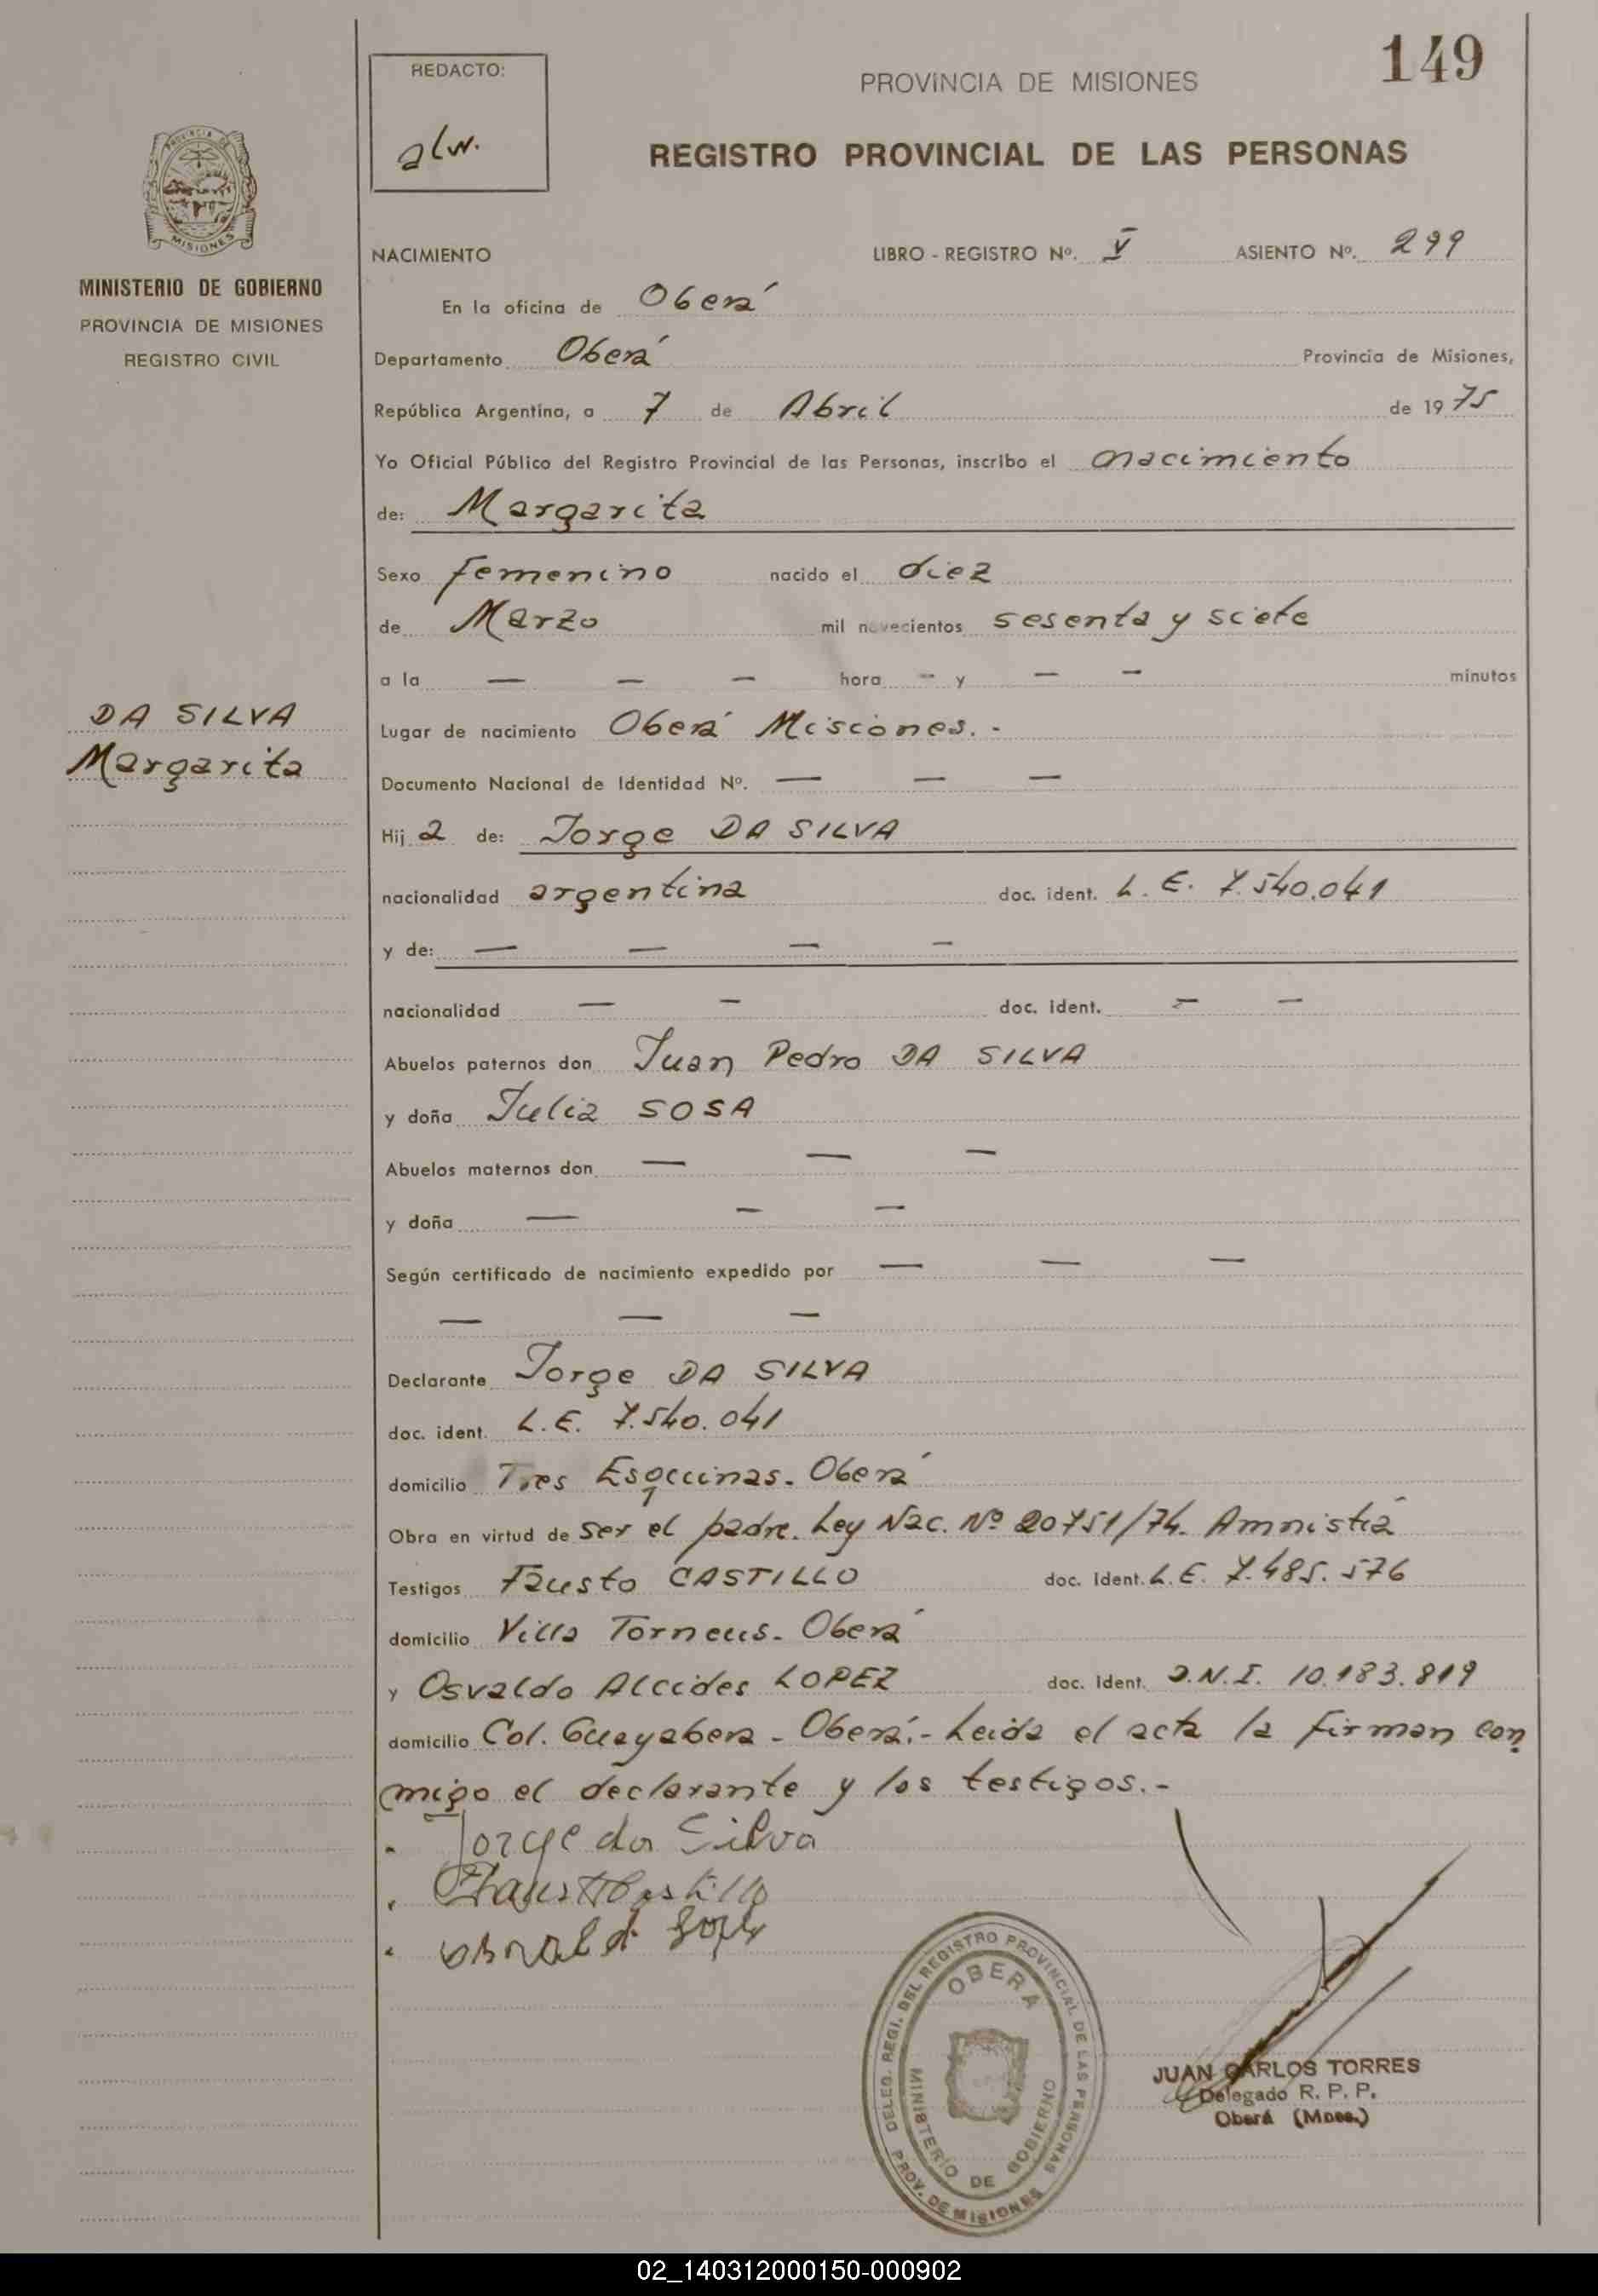 149
REDACTO:
alw.
PROVINCIA DE MISIONES
REGISTRO PROVINCIAL DE LAS PERSONAS
PROVINCIA DE
MISIONES
MINISTERIO DE GOBIERNO
PROVINCIA DE MISIONES
REGISTRO CIVIL
NACIMIENTO LIBRO - REGISTRO Nº. V ASIENTO Nº. 299
En la oficina de Oberá
Departamento Oberá Provincia de Misiones,
República Argentina, a 7 de Abril de 1975
Yo Oficial Público del Registro Provincial de las Personas, inscribo el nacimiento
de: Margarita
Sexo femenino nacido el diez
de Marzo mil novecientos sesenta y siete
a la — — — hora - y — — minutos
DA SILVA
Margarita
Lugar de nacimiento Oberá Misiones. -
Documento Nacional de Identidad Nº. — — —
Hija de: Jorge DA SILVA
nacionalidad argentina doc. ident. L. E. 7.540.041
y de: — — — —
nacionalidad — — doc. ident. — —
Abuelos paternos don Juan Pedro DA SILVA
y doña Julia SOSA
Abuelos maternos don — — —
y doña — — —
Según certificado de nacimiento expedido por — — —
— — —
Declarante Jorge DA SILVA
doc. ident. L.E. 7.540.041
domicilio Tres Esquinas. Oberá
Obra en virtud de ser el padre. Ley Nac. Nº 20751/74. Amnistia
Testigos Fausto CASTILLO doc. ident. L.E. 7.485.576
domicilio Villa Torneus. Oberá
y Osvaldo Alcides LOPEZ doc. ident. D.N.I. 10.183.819
domicilio Col. Guayabera - Oberá.- Leida el acta la firman con
migo el declarante y los testigos.-
Jorge da Silva
Faust Castillo
DELEG. REGI. DEL REGISTRO PROVINCIAL DE LAS PERSONAS
OBERA
MINISTERIO DE GOBIERNO
PROV. DE MISIONES
JUAN CARLOS TORRES
Delegado R. P. P.
Oberá (Mnes.)
02_140312000150-000902